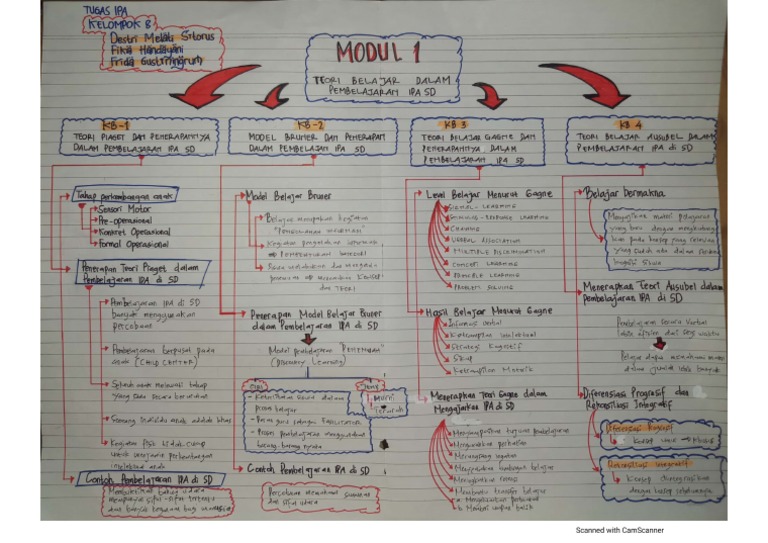 TUGAS IPA
KELOMPOK 8
Destri Melati Sitorus
Fikia Handayani
Frida Gustiningrum
MODUL 1
TEORI BELAJAR DALAM
PEMBELAJARAN IPA SD
KB-1
TEORI PIAGET DAN PENERAPANNYA
DALAM PEMBELAJARAN IPA SD
Tahap perkembangan anak
Sensori Motor
Pre-operasional
Konkret Operasional
Formal Operasional
Penerapan Teori Piaget dalam
Pembelajaran IPA di SD
Pembelajaran IPA di SD
banyak menggunakan
percobaan
Pembelajaran berpusat pada
anak (CHILD CENTER)
anak melewati tahap
yang secara berurutan
anak adalah khas
Kegiatan fisik tidak cukup
untuk perkembangan
intelektual anak
Contoh Pembelajaran IPA di SD
bahwa udara
mempunyai sifat-sifat tertentu
dan banyak bagi manusia
KB-2
MODEL BRUNER DAN PENERAPAN
DALAM PEMBELAJARAN IPA SD
Model Belajar Bruner
Belajar merupakan kegiatan
Kegiatan
dan TEORI
Penerapan Model Belajar Bruner
dalam Pembelajaran IPA di SD
Model pembelajaran "PENEMUAN"
(Discovery Learning)
CIRI
- Keterlibatan siswa dalam
proses belajar
- Peran guru sebagai FASILITATOR
- Proses pembelajaran menggunakan
barang-barang nyata
JENIS
Murni
Terarah
Contoh Pembelajaran IPA di SD
Percobaan
dan sifat udara
KB 3
TEORI BELAJAR GAGNE DAN
PENERAPANNYA DALAM
PEMBELAJARAN IPA SD
Level Belajar Menurut Gagne
SIGNAL LEARNING
STIMULUS-RESPONSE LEARNING
CHAINING
VERBAL ASSOCIATION
MULTIPLE DISCRIMINATION
CONCEPT LEARNING
PRINCIPLE LEARNING
PROBLEM SOLVING
Hasil Belajar Menurut Gagne
Informasi verbal
Keterampilan Intelektual
Strategi Kognitif
Sikap
Keterampilan Motorik
Menerapkan Teori Gagne dalam
Mengajarkan IPA di SD
Menyampaikan tujuan pembelajaran
Mengarahkan perhatian
Merangsang ingatan
Menyediakan bimbingan belajar
Meningkatkan
Membantu transfer belajar
& Memberi umpan balik
KB 4
TEORI BELAJAR AUSUBEL DALAM
PEMBELAJARAN IPA di SD
Belajar Bermakna
materi pelajaran
yang baru dengan
pada konsep yang relevan
yang sudah ada dalam
kognitif siswa
Menerapkan Teori Ausubel dalam
Pembelajaran IPA di SD
Pembelajaran secara verbal
lebih efisien dari segi waktu
Pelajar dapat
dalam jumlah lebih banyak
Diferensiasi Progresif dan
Rekonsiliasi Integratif
Konsep umum → khusus
Konsep diintegrasikan
dengan konsep sebelumnya
Scanned with CamScanner